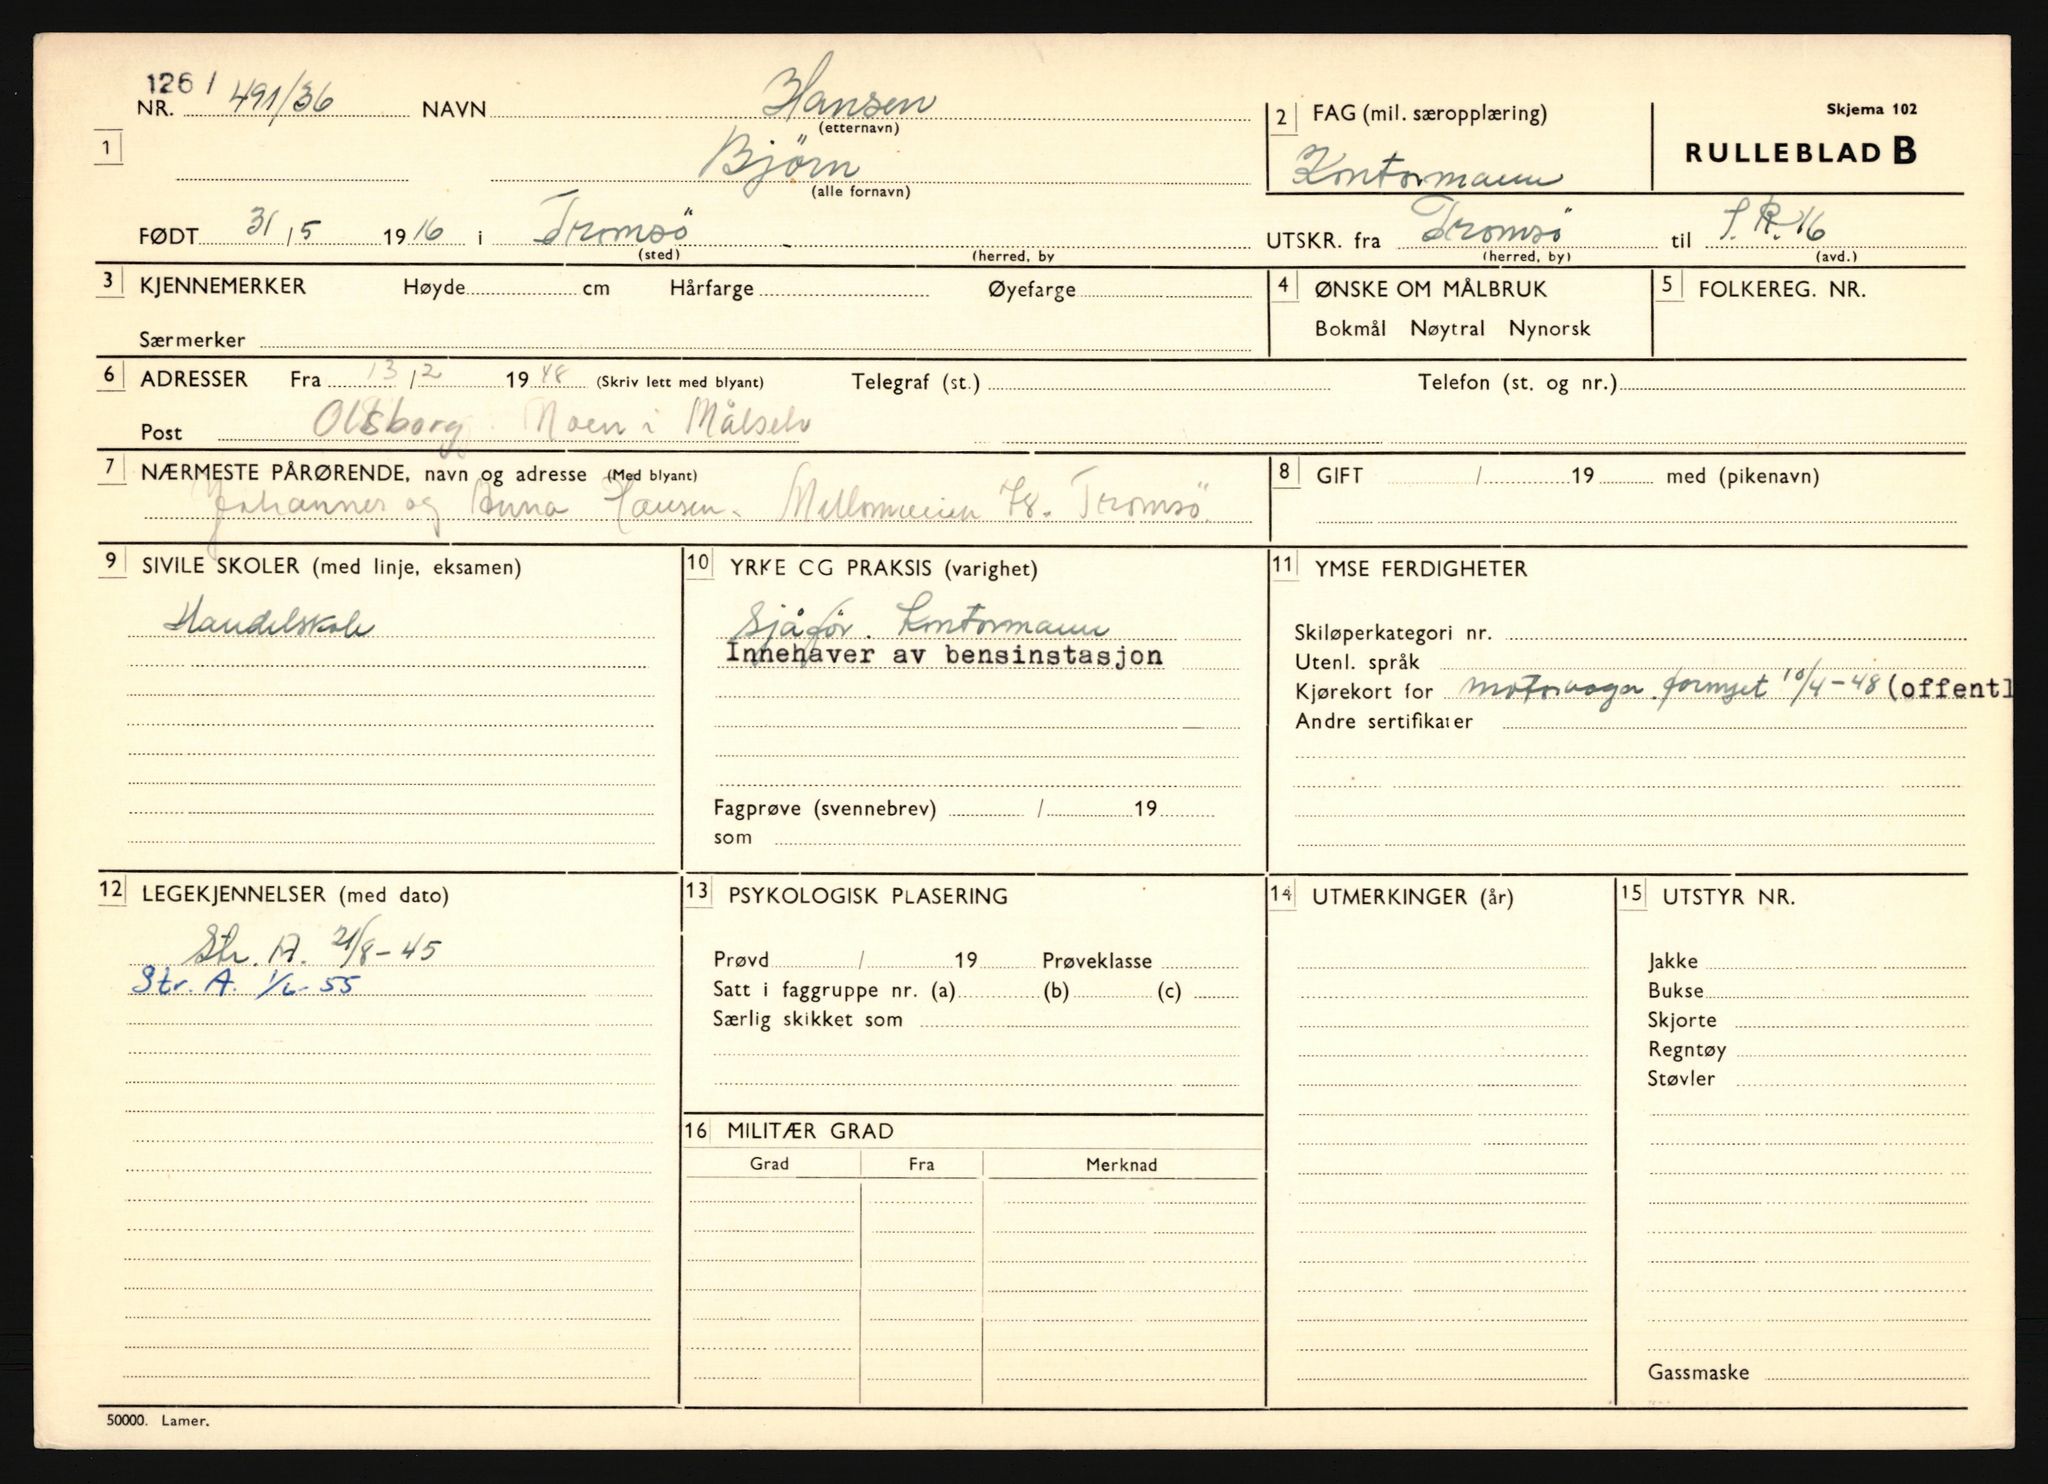 126/
NR. 491/36 NAVN Hansen
(etternavn)
1 Bjørn
(alle fornavn)
2 FAG (mil. særopplæring)
Kontormann
Skjema 102
RULLEBLAD B
FØDT 31/5 1916 i Tromsö
(sted) (herred, by
UTSKR. fra Tromsö til I.R. 16
(herred, by) (avd.)
3 KJENNEMERKER Høyde cm Hårfarge Øyefarge
Særmerker
4 ØNSKE OM MÅLBRUK
Bokmål Nøytral Nynorsk
5 FOLKEREG. NR.
6 ADRESSER Fra 13/2 1948 (Skriv lett med blyant) Telegraf (st.) Telefon (st. og nr.)
Post Olsborg Moen i Målselv
7 NÆRMESTE PÅRØRENDE, navn og adresse (Med blyant)
Johannes og Anna Hansen. 78. Tromsö.
8 GIFT / 19 med (pikenavn)
9 SIVILE SKOLER (med linje, eksamen)
Handelskole
10 YRKE CG PRAKSIS (varighet)
Sjåfør. Kontormann
Innehaver av bensinstasjon
Fagprøve (svennebrev) / 19
som
11 YMSE FERDIGHETER
Skiløperkategori nr.
Utenl. språk
Kjørekort for motorvogn fornyet 10/4-48 (offentl
Andre sertifikater
12 LEGEKJENNELSER (med dato)
Str. A. 21/8-45
Str. A. 1/6-55
13 PSYKOLOGISK PLASERING
Prøvd / 19 Prøveklasse
Satt i faggruppe nr. (a) (b) (c)
Særlig skikket som
14 UTMERKINGER (år)
15 UTSTYR NR.
Jakke
Bukse
Skjorte
Regntøy
Støvler
Gassmaske
16 MILITÆR GRAD
Grad Fra Merknad
50000. Lamer.